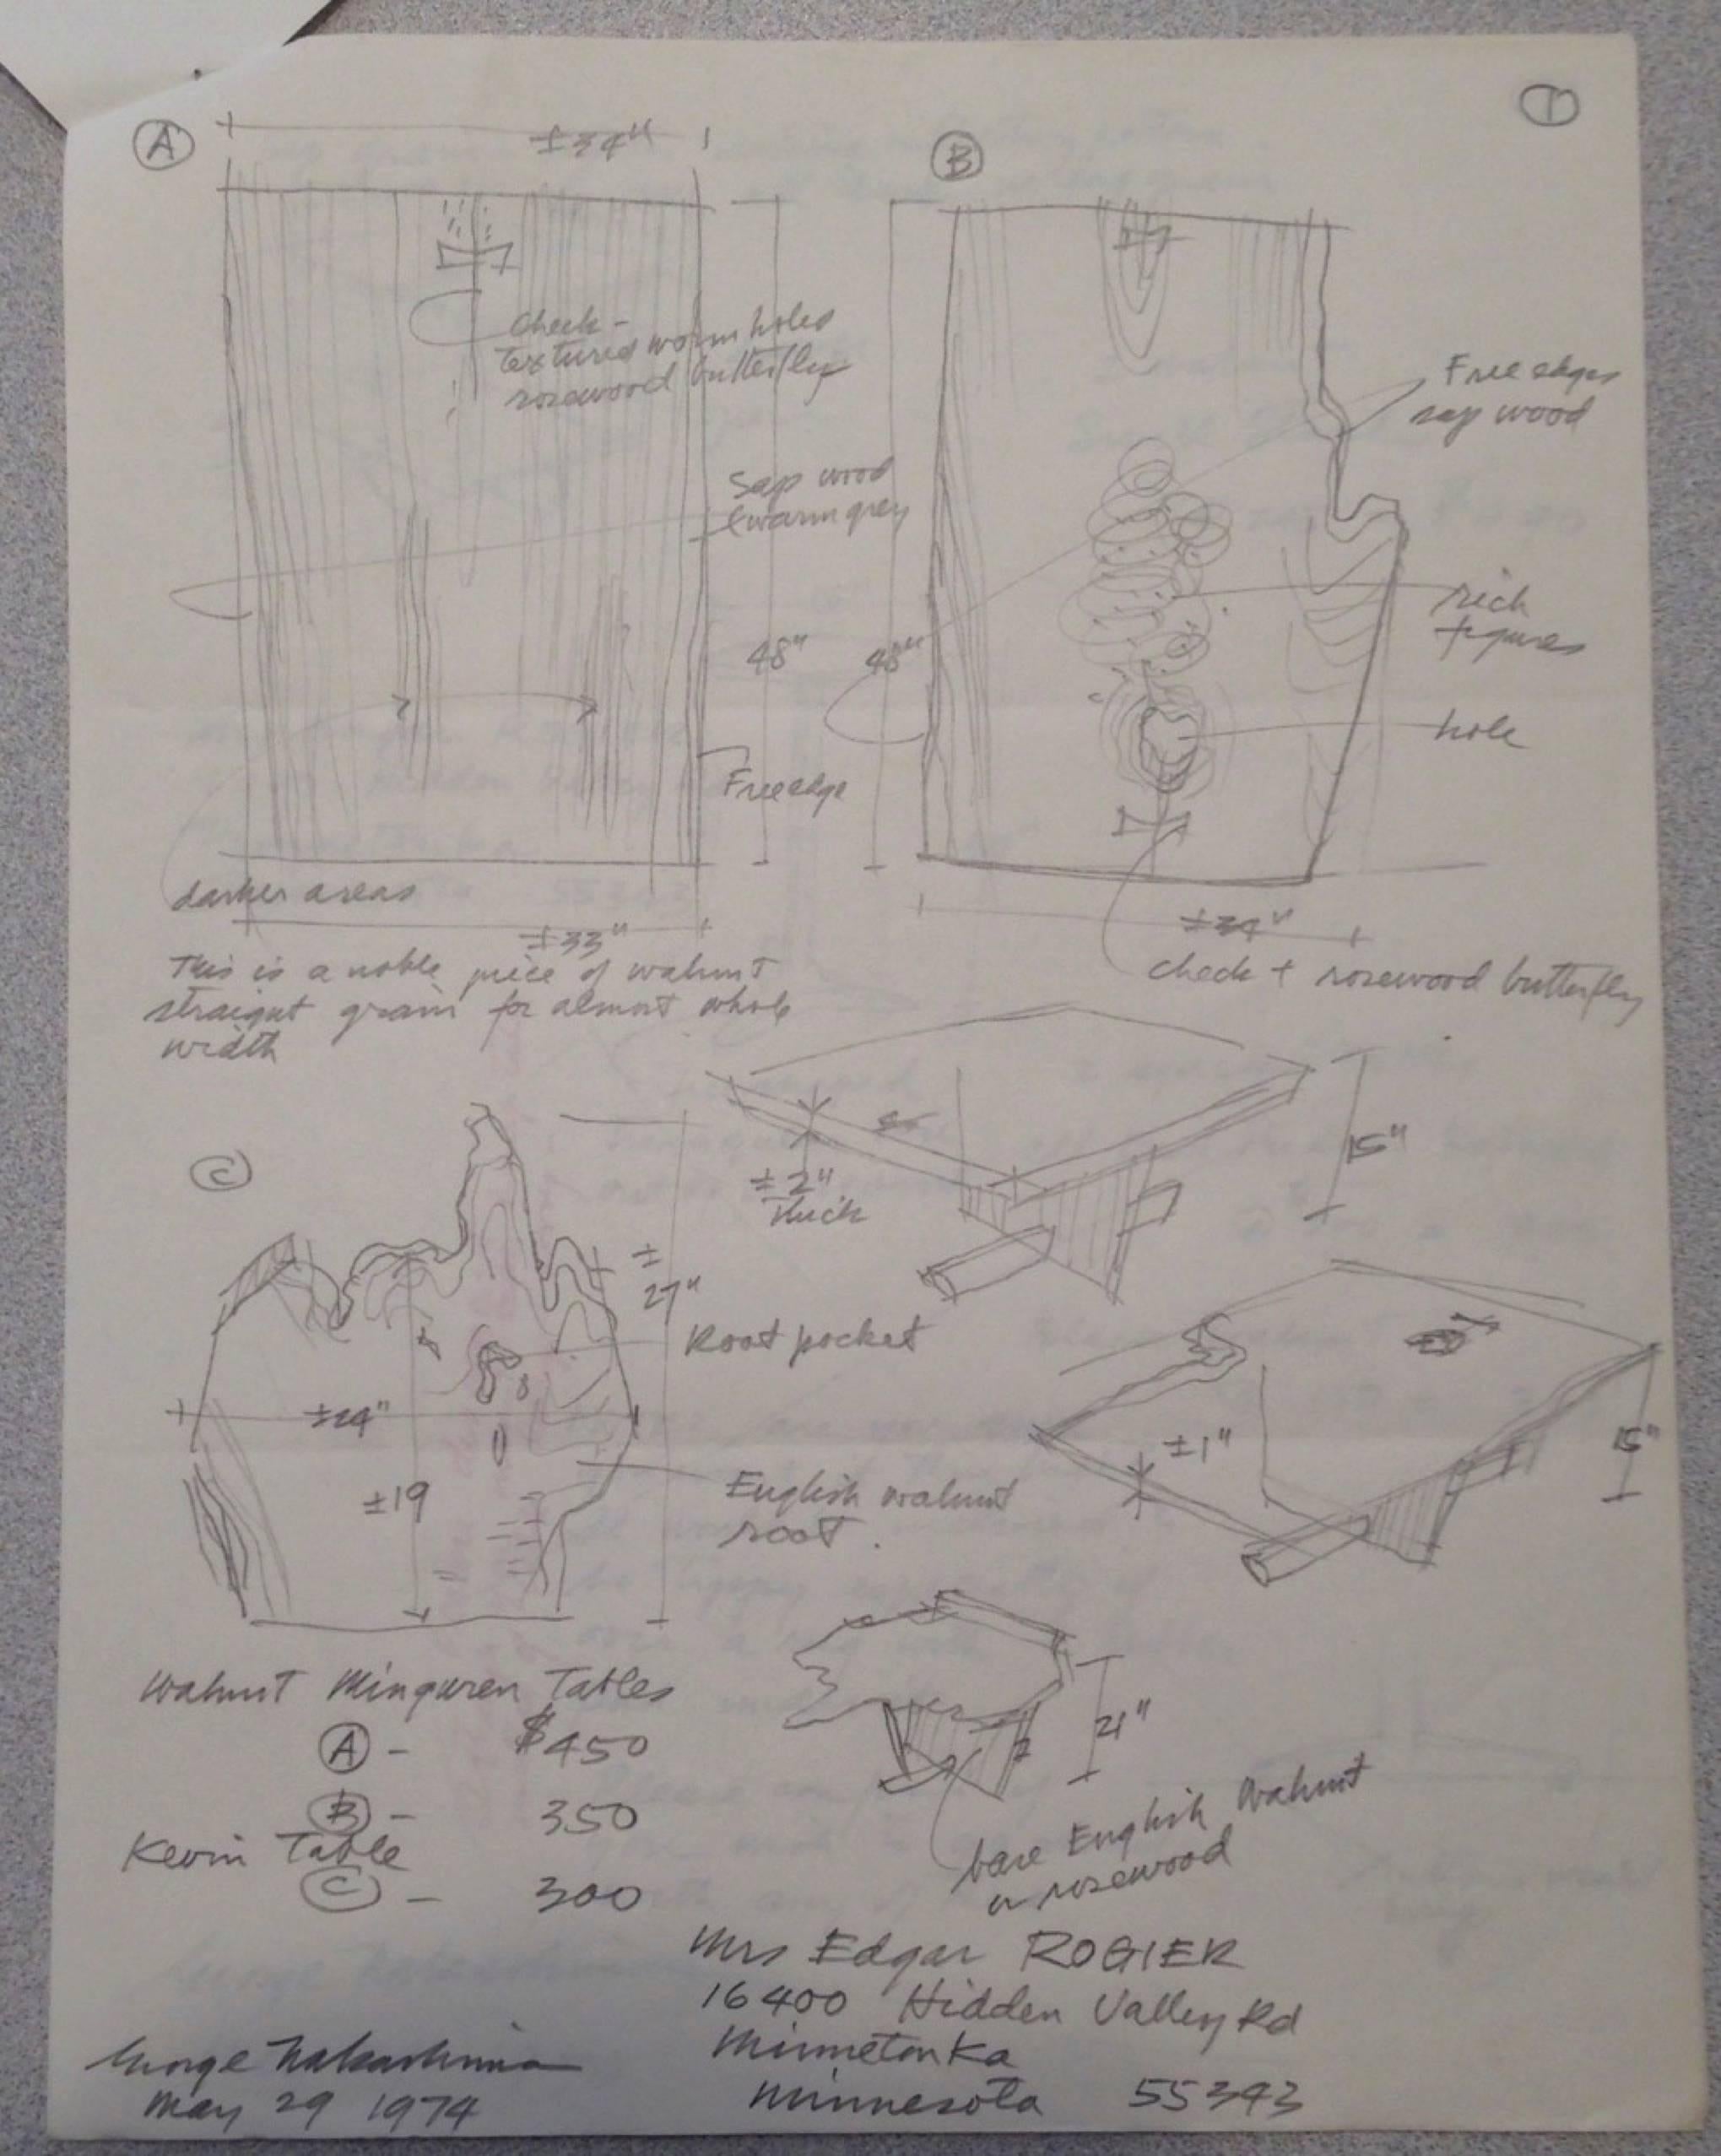 ①
Ⓐ
±34"
Ⓑ
Check -
textured worm holes
rosewood butterfly
Free edges
sap wood
Sap wood
(warm grey
rich
figures
48"
48"
hole
Free edge
darker areas
±33"
±34"
check + rosewood butterfly
This is a noble piece of walnut
straight grain for almost whole
width
Ⓒ
±2"
thick
15"
±
27"
Root pocket
±24"
±1"
15"
±19
English walnut
root.
Walnut Minguren Tables
Ⓐ - $450
Ⓑ - 350
Kevin Table
Ⓒ - 300
21"
base English Walnut
or rosewood
Mrs Edgar ROGIER
16400 Hidden Valley Rd
Minnetonka
Minnesota 55343
George Nakashima
May 29 1974